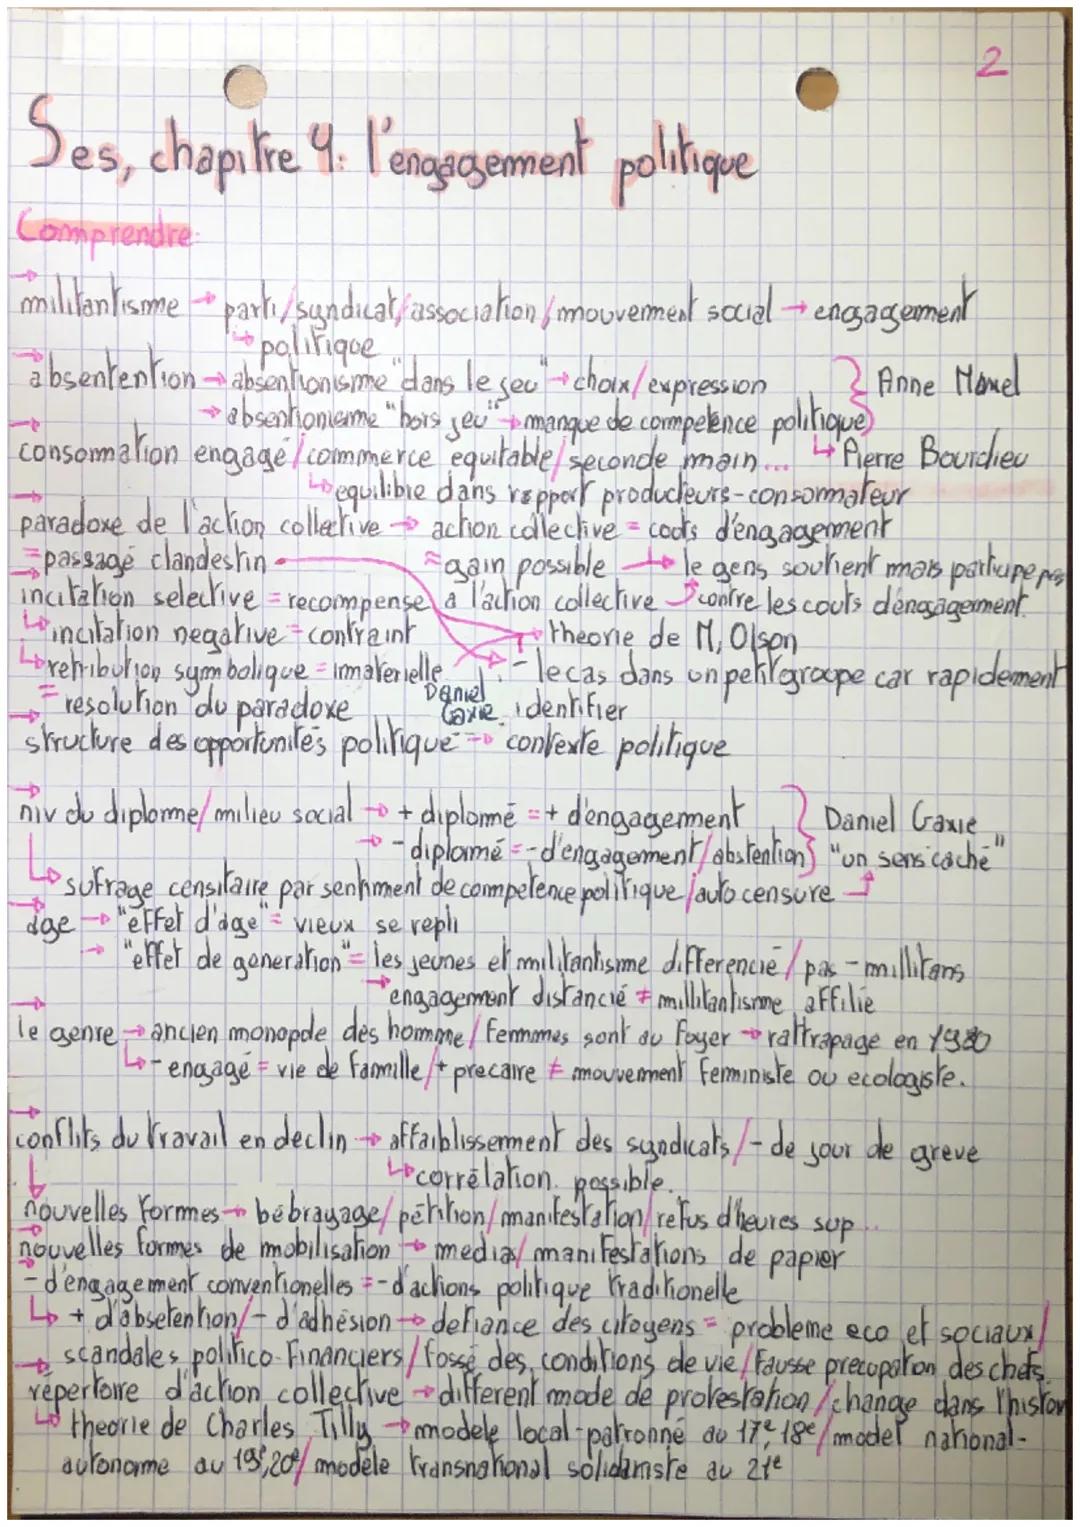 2
Ses, chapitre 4: l'engagement politique
Comprendre:
militantisme → parti/syndicat/association/mouvement social → engagement
↳ politique
absentention → absentionisme "dans le jeu" → choix/expression } Anne Muxel
→ absentionisme "hors jeu" → manque de competence politique }
consommation engagé/commerce equitable/seconde main... ↳ Pierre Bourdieu
↳ equilibre dans rapport producteurs-consommateur
paradoxe de l'action collective → action collective = couts d'engagement
= passagé clandestin = gain possible → le gens soutient mais participe pas
incitation selective = recompense a l'action collective contre les couts d'engagement.
↳ incitation negative = contraint → theorie de M, Olson
↳ retribution symbolique = immaterielle → - le cas dans un petit groupe car rapidement
= resolution du paradoxe Daniel Gaxie identifier
structure des opportunités politique → contexte politique
niv du diplome/milieu social → + diplomé = + d'engagement } Daniel Gaxie
→ - diplomé = - d'engagement/abstention } "un sens caché"
↳ sufrage censitaire par sentiment de competence politique/auto censure
âge → "effet d'âge" = vieux se repli
→ "effet de generation" = les jeunes et militantisme differencié/pas - millitans
→ engagement distancié ≠ millitantisme affilié
le genre → ancien monopole des homme/femmes sont au foyer → rattrapage en 1980
↳ - engagé = vie de famille/+ precaire ≠ mouvement feministe ou ecologiste.
conflits du travail en declin → affaiblissement des syndicats/- de jour de greve
↳ corrélation possible.
nouvelles formes → bébrayage/pétition/manifestation/refus d'heures sup...
nouvelles formes de mobilisation → medias/manifestations de papier
- d'engagement conventionelles = - d'actions politique traditionelle
↳ + d'absetention/- d'adhésion → defiance des citoyens = probleme eco et sociaux/
→ scandales politico-financiers/fossé des conditions de vie/fausse precupation des chefs.
répertoire d'action collective → different mode de protestation/change dans l'histoire
↳ theorie de Charles Tilly → modele local-patronné au 17e, 18e/model national-
autonome au 19e, 20e/modèle transnational solidariste au 21e